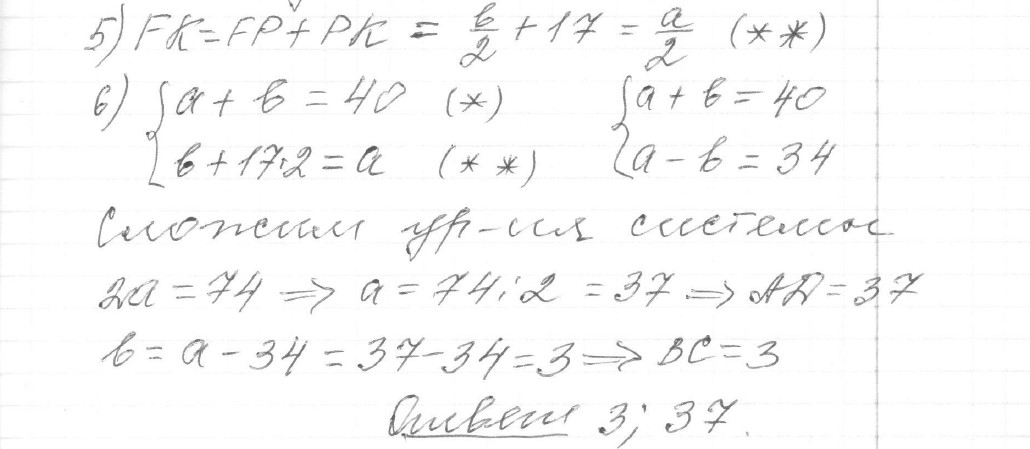 5) FK = FP + PK = в/2 + 17 = a/2 (**)
6) { a + в = 40 (*) { a + в = 40
{ в + 17·2 = a (**) { a - в = 34
Сложим ур-ия системы
2a = 74 => a = 74:2 = 37 => AD = 37
в = a - 34 = 37 - 34 = 3 => BC = 3
Ответ 3; 37.